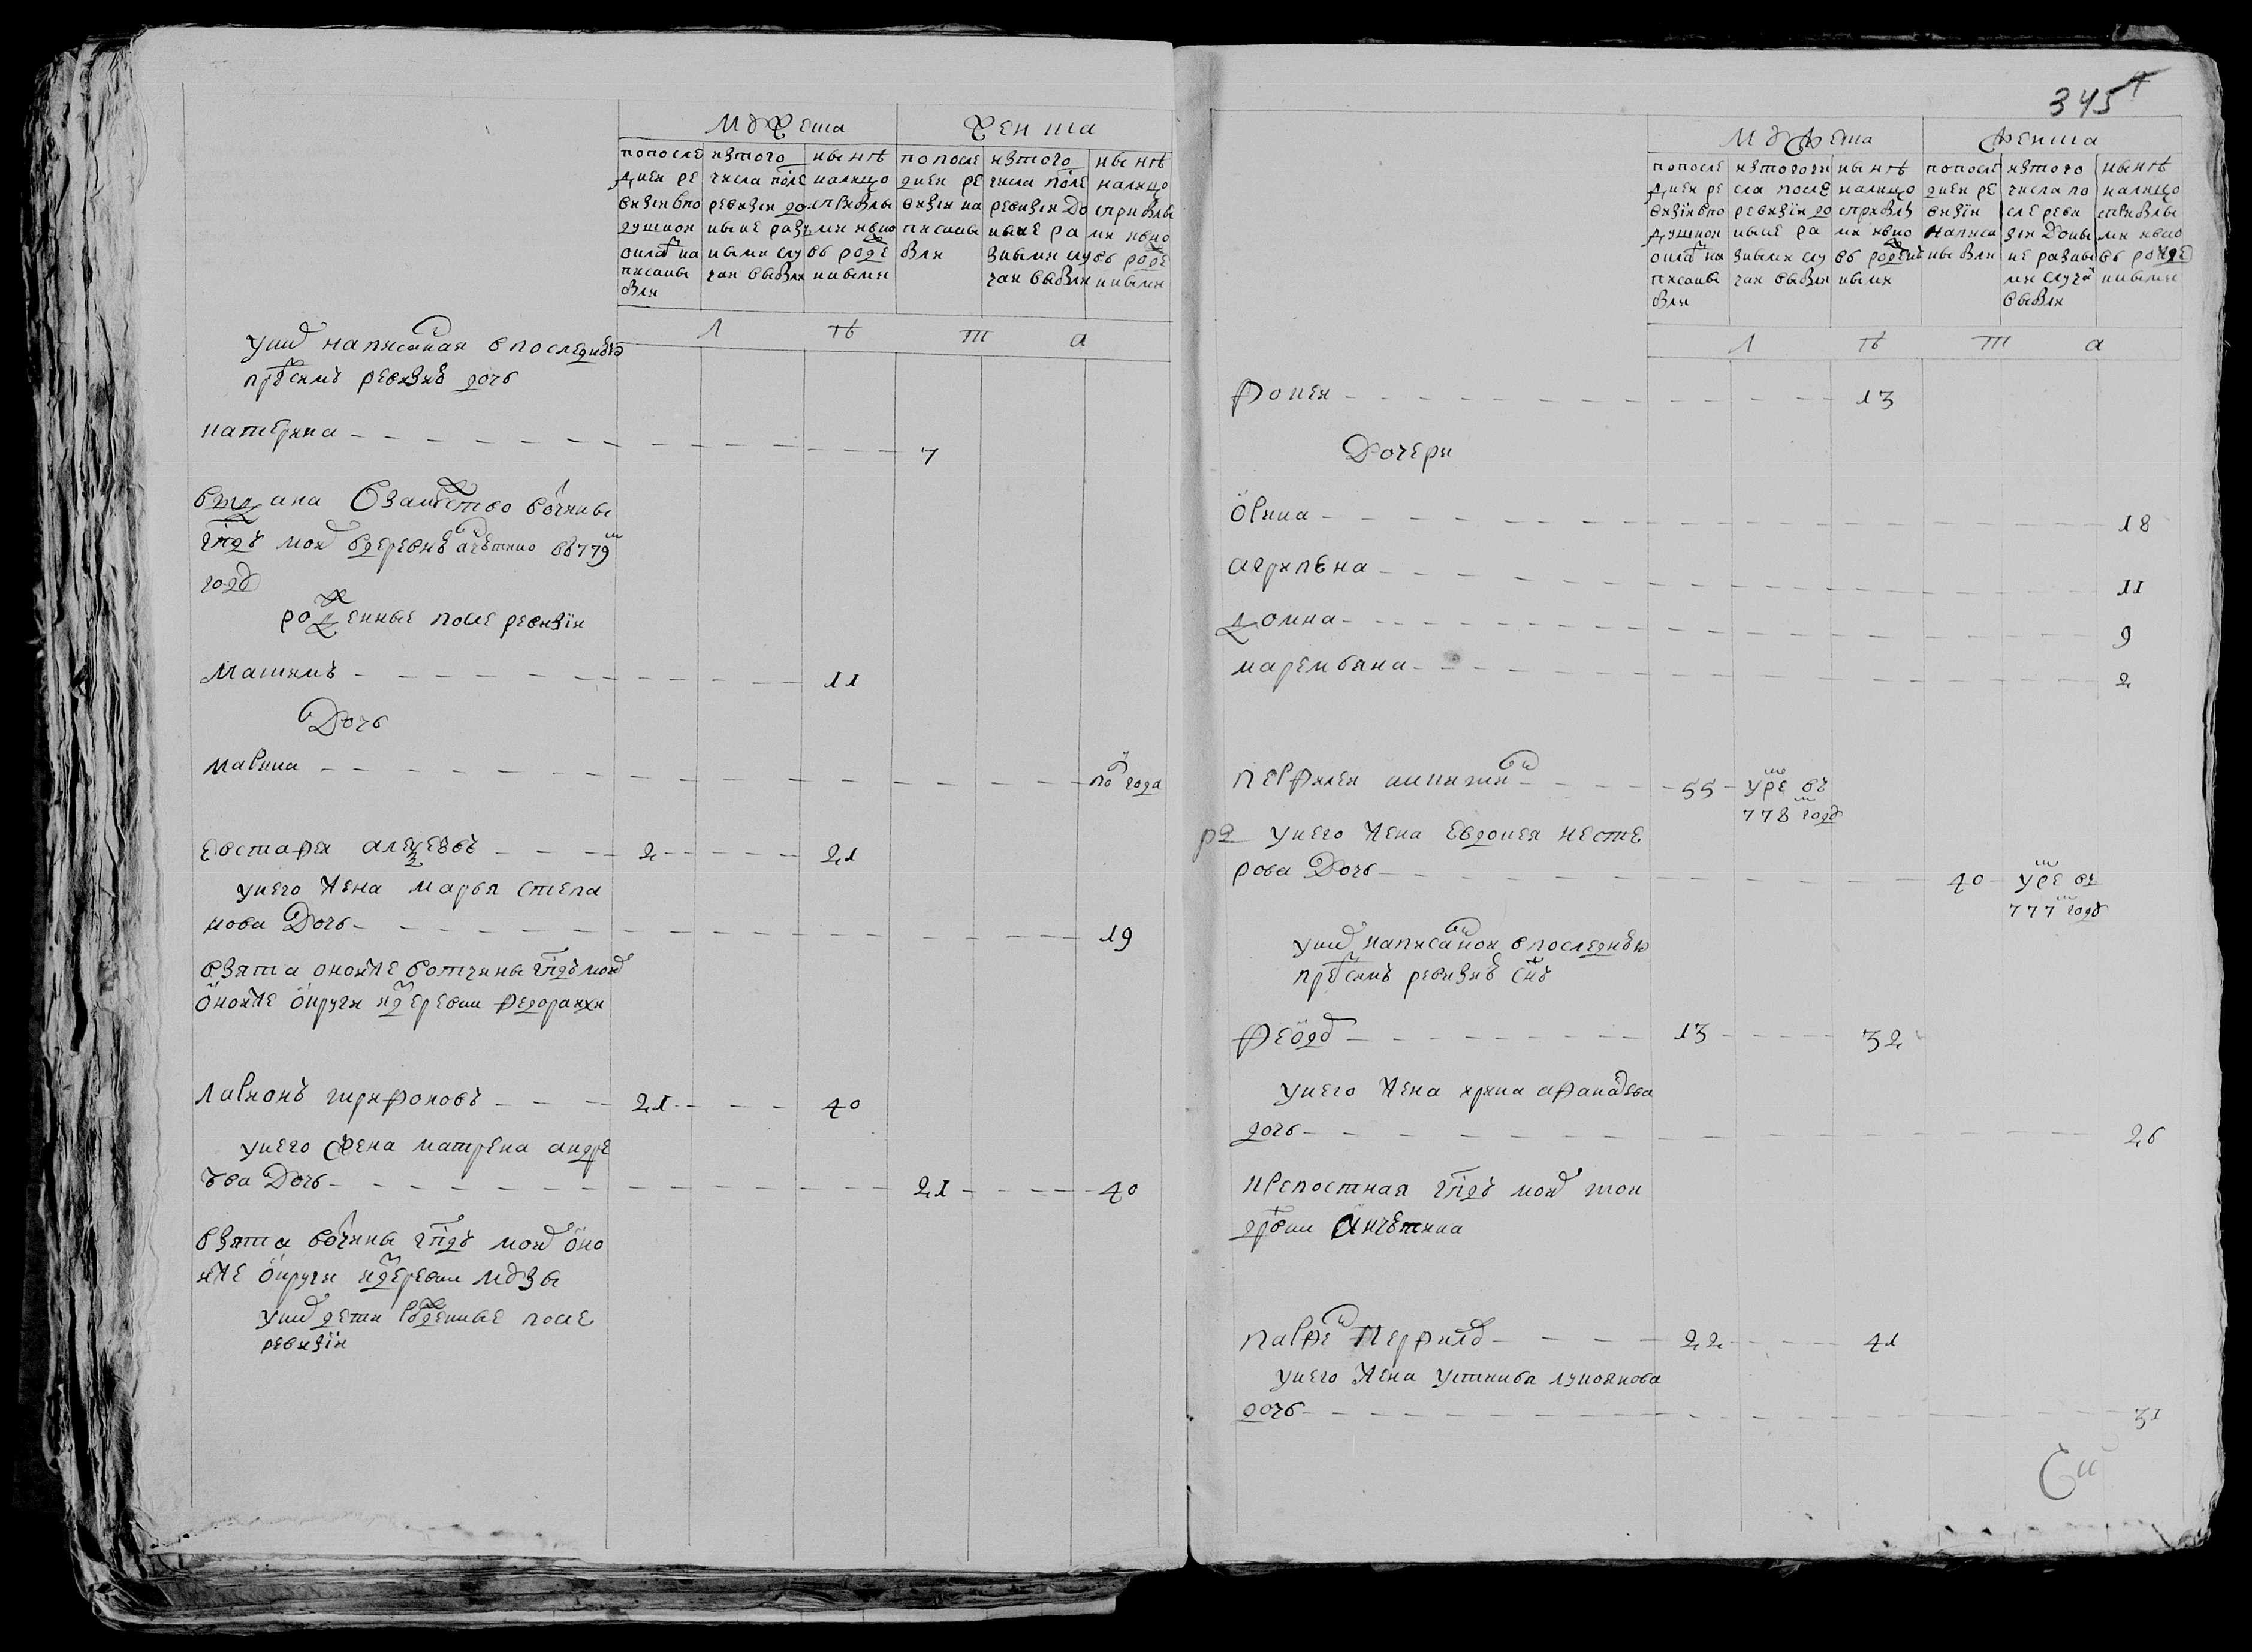 Мужеска
Женска
попосле
дней ре
визіи впо
душном
окладѣ на
писаны
были
изтого
числа после
ревизіи до
ныне разн
ными слу
чаи выбыли
ныне
налицо
сприбылы
ми ивно
вь рожде
нными
попосле
дней ре
визіи на
писаны
были
изтого
числа после
ревизіи до
ныне ра
зными слу
чаи выбыли
ныне
налицо
сприбылы
ми ивно
вь рожде
нными
л ѣ т а
уних написаная впоследнею
пред симъ ревизию дочь
катерина 7
выдана взамужство вотчины
гпдъ моихъ вдеревню
году
рожденные после ревизіи
Матимъ 11
Дочь
мавика полгода
евстафей алексеевъ 2 21
унего жена марья степа
нова Дочь 19
взята онойже вотчины гпдъ моихъ
онойже округи издеревни Федоранхи
лавионъ гирифоновъ 21 40
унего жена матрена андре
ѣва Дочь 21 40
взята вотчины гпдъ моихъ оно
йже округи издеревни мдзы
уних дети рожденные после
ревизіи
345
Мужеска
Женска
попосле
дней ре
визіи впо
душном
окладѣ на
писаны
были
изтогочи
сла после
ревизіи до
ныне ра
зными слу
чаи выбыли
ныне
налицо
сприбылы
ми ивно
вь рожден
ными
попосле
дней ре
визіи
написа
ны были
изтого
числа по
сле реви
зіи доны
не разны
ми случаи
выбыли
ныне
налицо
сприбылы
ми ивно
вь рожде
нными
л ѣ т а
Фокей 13
Дочери
овина 18
агрипѣна 11
домна 9
маремьяна 2
перфилей 55 умре въ
778 году
унего жена Евдокея несте
рова Дочь 40 умре въ
777 году
уних написаной впоследнею
пред симъ ревизию снъ
Федор 13 32
унего жена ирина афанасева
дочь 26
крепостная гпдъ моихъ той
дрвни
Перфилев 22 41
унего жена устинья лукоянова
дочь 31